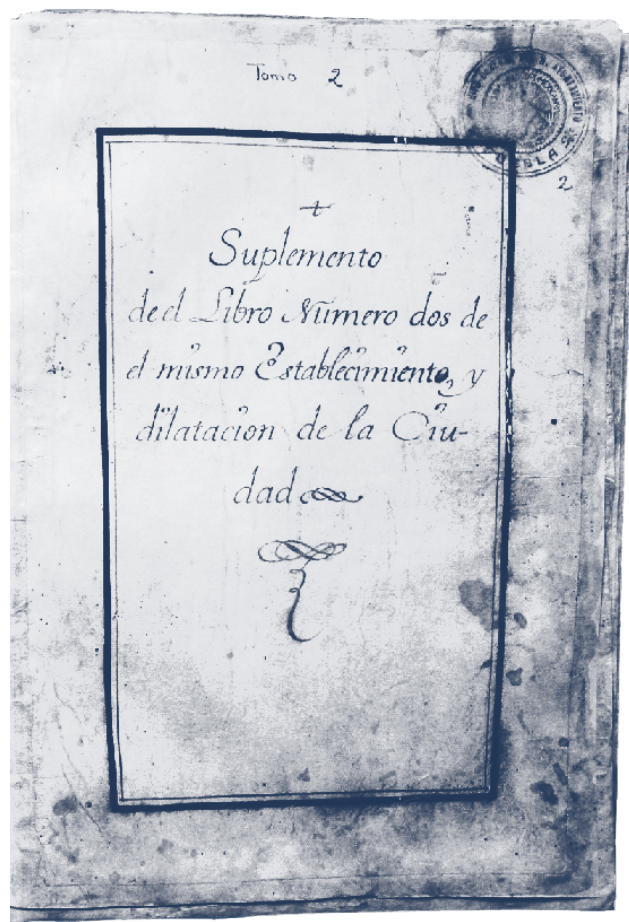 Tomo 2
2
+
Suplemento
de el Libro Número dos de
el mismo Establecimiento, y
dilatacion de la Ciu-
dad